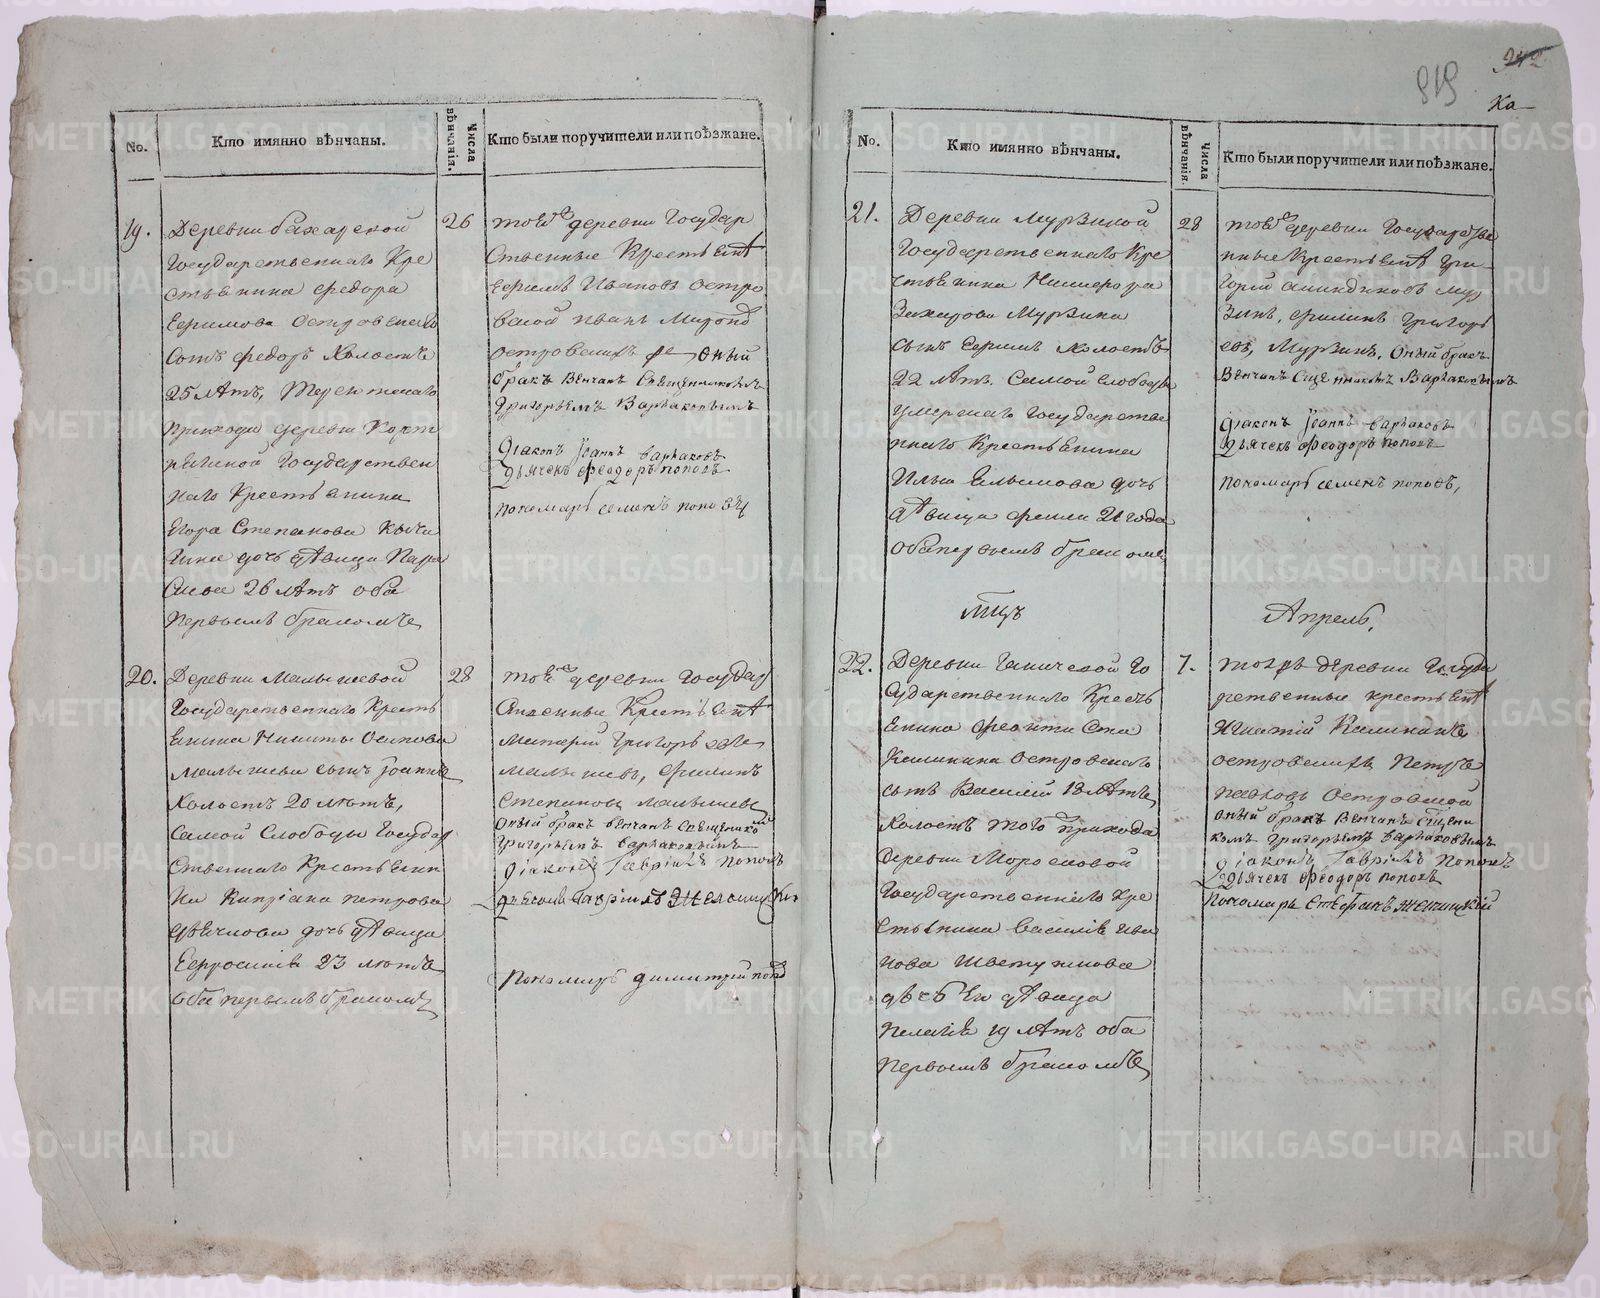 No.
Кто имянно вѣнчаны.
Числа вѣнчанія.
Кто были поручители или поѣзжане.
19.
Деревни
Государственнаго Кре
стьянина Федора
Ефимова Островскаго
сынъ Федоръ Холостъ
25 лѣтъ,
приходу деревни
Государствен
наго Крестьянина
Егора Степанова
дочь дѣвица Пара
26 лѣтъ оба
первымъ бракомъ
26
той деревни Государ
ственные Крестьянѣ
Ефимъ Ивановъ Остро
вской Иванъ
островскихъ оный
бракъ вѣнчанъ Священникомъ
Григорьемъ Варлаковымъ
Діаконъ Іоаннъ Варлаковъ
Дьячекъ Феодоръ Поповъ
Пономарь Семенъ Поповъ
20.
Деревни Малышевой
Государственнаго Кресть
янина Никиты Осипова
Малышева сынъ Іоаннъ
Холостъ 20 лѣтъ,
самой Слободы Государ
ственнаго Крестьяни
на Кипріана Петрова
дочь дѣвица
Ефросинія 23 лѣтъ
оба первымъ бракомъ
28
той деревни Государ
ственные Крестьянѣ
Григорьевъ
Малышевъ, Филипъ
Степановъ Малышевъ
Оный бракъ вѣнчанъ Священником
Григорьемъ Варлаковымъ
Діаконъ Гавріилъ Поповъ
Пономарь Димитрій Поповъ
342
919
Ка
No.
Кто имянно вѣнчаны.
Числа вѣнчанія.
Кто были поручители или поѣзжане.
21.
Деревни Мурзиной
Государственнаго Кре
стьянина Никифора
Захарова Мурзина
сынъ Ефимъ Холостъ
22 лѣтъ. Самой слободы
умершаго Государстве
ннаго Крестьянина
Ильи дочь
дѣвица 21 года
оба первымъ бракомъ
28
той деревни Государстве
нные Крестьянѣ Гри
горій Мур
зинъ, Филипъ Григорь
евъ, Мурзинъ. Оный бракъ
Вѣнчанъ Сщенникомъ Варлаковымъ
Діаконъ Іоаннъ Варлаковъ
Дьячекъ Феодоръ Поповъ
Пономарь Семенъ Поповъ,
Мцъ
Апрель.
22.
Деревни Ганичевой Го
сударственнаго Кресть
янина
Калинина Островскаго
сынъ Василій 18 лѣтъ
Холостъ того прихода
деревни Морозковой
Государственнаго Кре
стьянина Василія Ива
нова
дочь Ея дѣвица
Пелагія 19 лѣтъ оба
первымъ бракомъ
7.
тоежъ деревни Госуда
рственные крестьянѣ
Игнатій Калининъ
островскихъ Петръ
Павловъ Островской
оный бракъ вѣнчанъ Сщени
комъ Григорьемъ Варлаковымъ
Діаконъ Гавріилъ Поповъ
Дьячекъ Феодоръ Поповъ
Пономарь Стефанъ